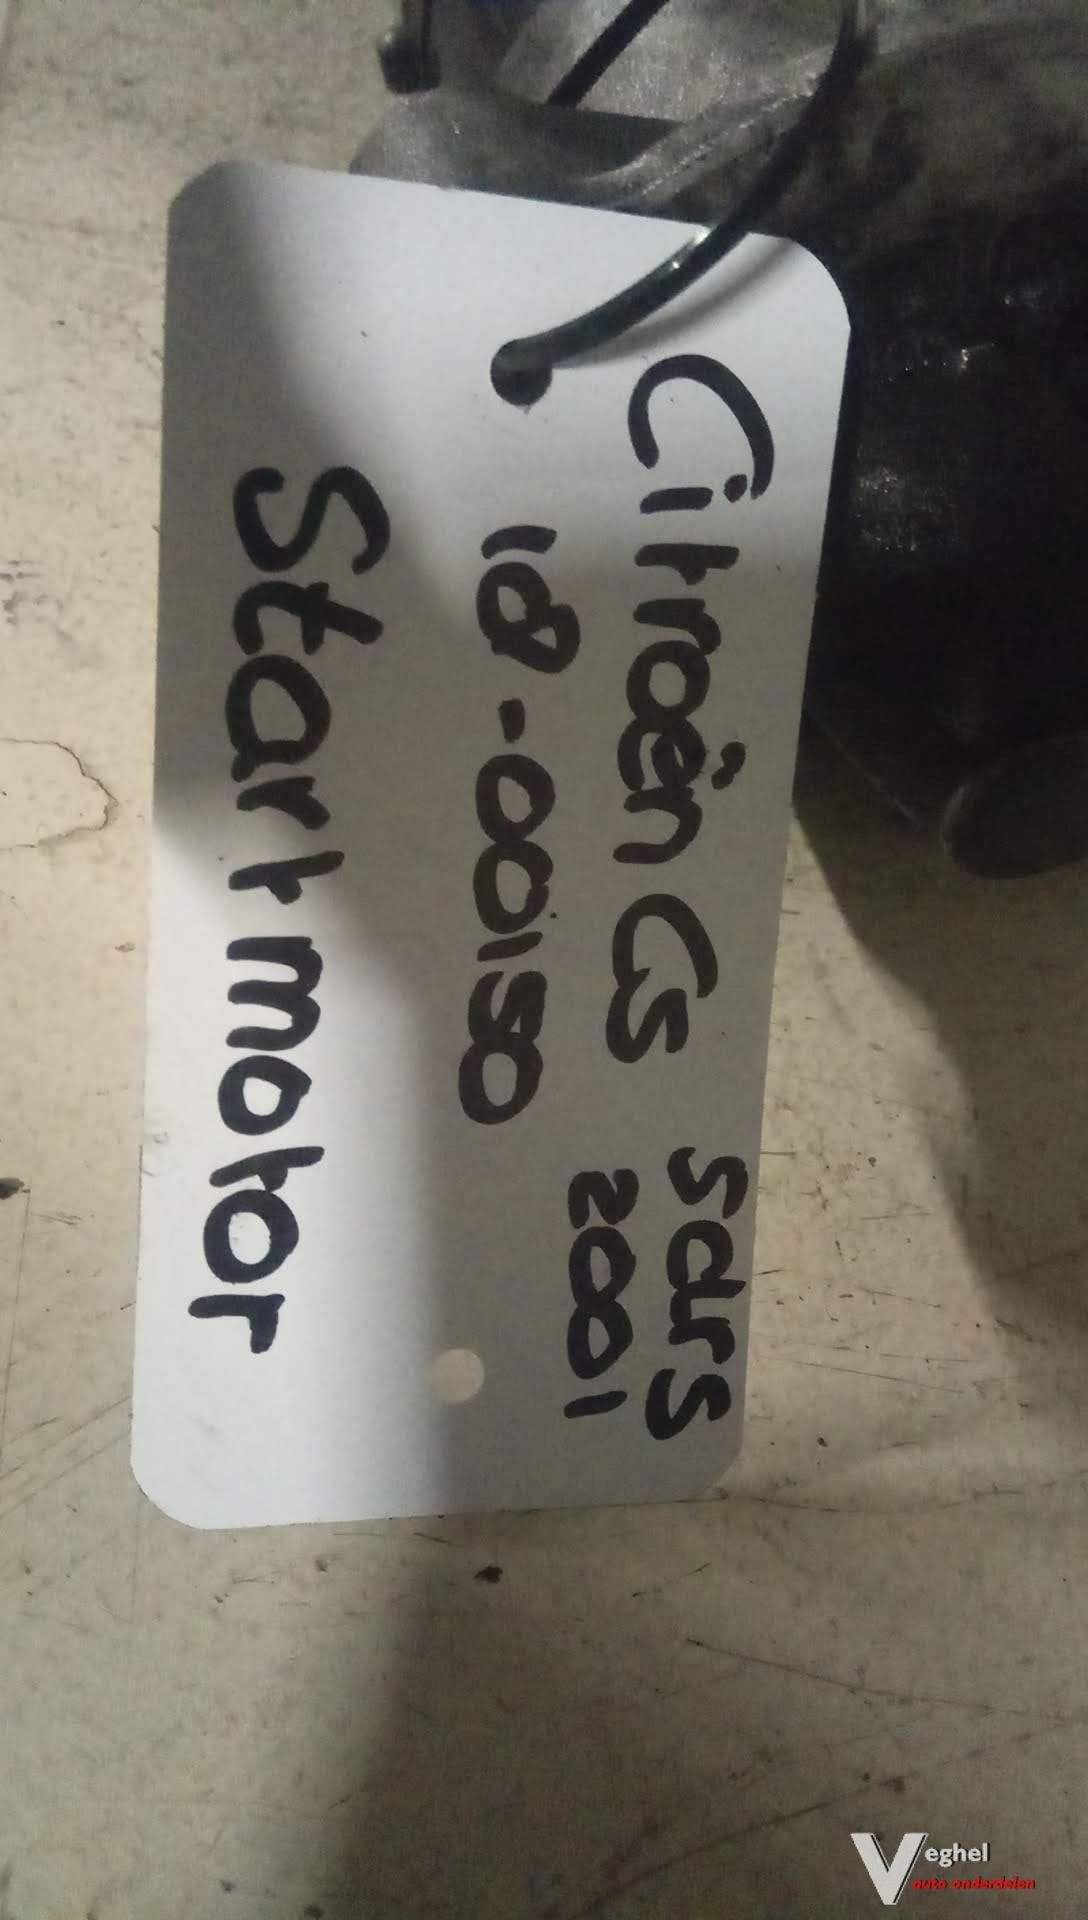 Citroën C5 Sdrs
2001
18-00150
Startmotor
Veghel
auto onderdelen